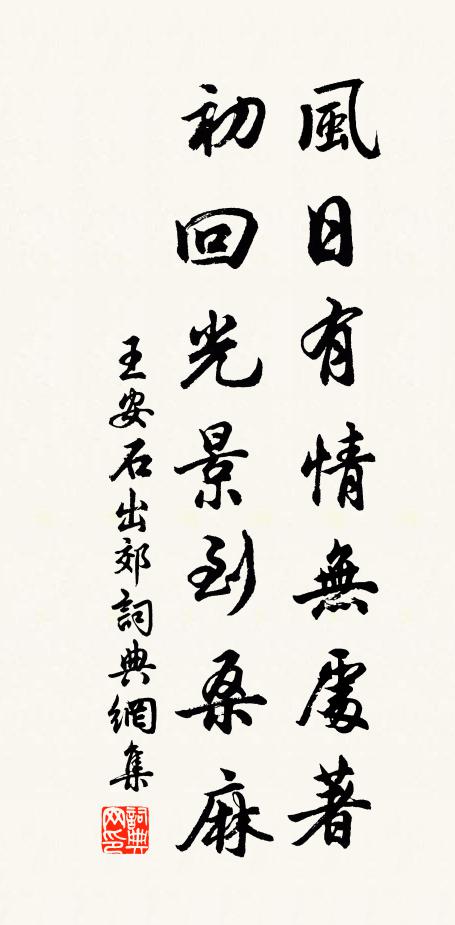 風日有情無處著
初回光景到桑麻
王安石出郊詞典網集
詞典网印